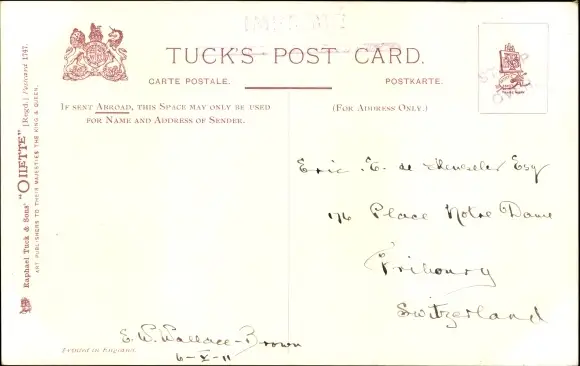 TUCK'S POST CARD.
CARTE POSTALE.
POSTKARTE.
IF SENT ABROAD, THIS SPACE MAY ONLY BE USED
FOR NAME AND ADDRESS OF SENDER.
(FOR ADDRESS ONLY.)
Raphael Tuck & Sons' "OILETTE" [Regd.] Postcard 1747.
ART PUBLISHERS TO THEIR MAJESTIES THE KING & QUEEN.
Eric. E. de Esq
176 Place Notre Dame
Fribourg
Switzerland
E. W. Wallace-Brown
6-X-11
Printed in England.